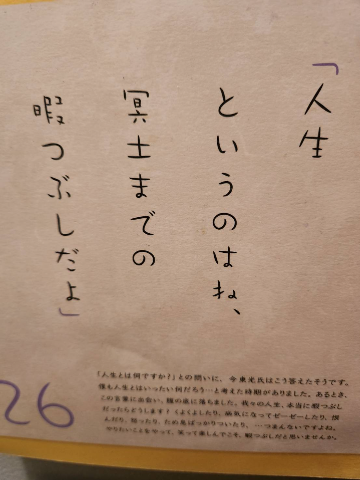 「人生
というのはね、
冥土までの
暇つぶしだよ」
「人生とは何ですか？」との問いに、今東光氏はこう答えたそうです。
僕も人生とはいったい何だろう…と考えた時期がありました。あるとき、
この言葉に出会い、腑の底に落ちました。我々の人生、本当に暇つぶし
だったらどうします？くよくよしたり、病気になってゼーゼーしたり、恨
んだり、怒ったり、ため息ばっかりついたり、…つまんないですよね。
やりたいことをやって、笑って楽しんでこそ、暇つぶしだと思いませんか。
26